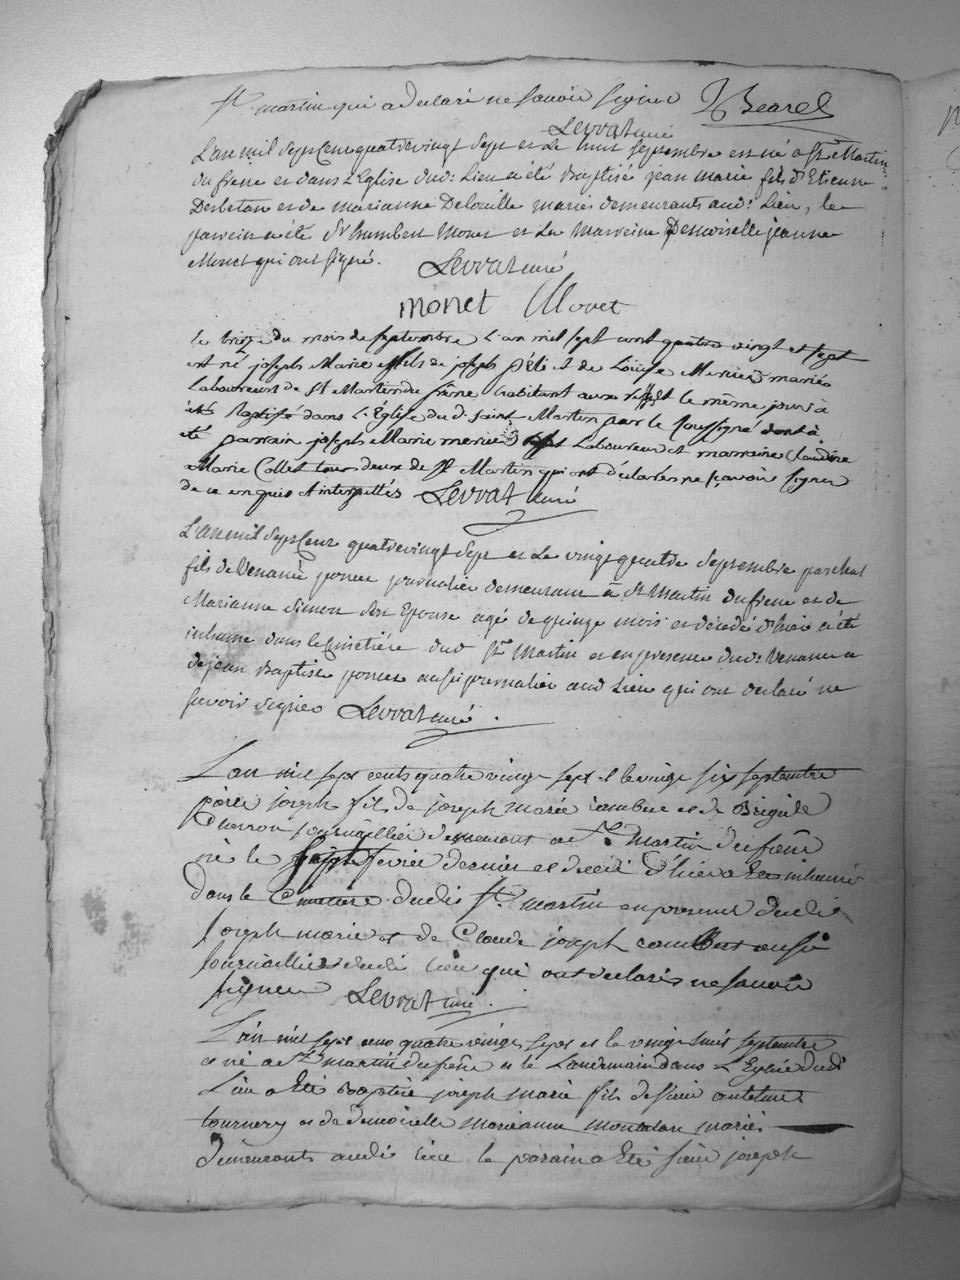 St martin qui a déclaré ne savoir signer JBearel
Levrat curé
L'an mil sept cent quatre vingt sept et le huit septembre est né a St Martin
du frene et dans l'Eglise dud: Lieu a été Baptisé jean marie fils d'Etienne
Desbetan et de marianne Delouille mariés demeurants aud: Lieu, le
parrein a été Sr humbert Monet et La Marreine Demoiselle jeanne
Monet qui ont signé. Levrat curé
monet Monet
le treize du mois de septembre l'an mil sept cent quatre vingt et sept
est né joseph Marie fils de joseph et de Loüise Mercier mariés
Laboureurs de St Martin du frêne habitant aux et le même jour a
été Baptisé dans l'Église du d. saint Martin par le soussigné dont a
été parrain joseph Marie mercier Laboureur et marraine Claudine
Marie Collet tous deux de St Martin qui ont déclarés ne sçavoir signer
de ce enquis et interpellés Levrat curé
L'an mil sept Cent quatre vingt sept et Le vingt quatre septembre paschal
fils de Venance poncet journalier demeurant à St Martin du frene et de
Marianne Simon son Epouse agé de quinze mois et décédé d'hier a été
inhumé dans le Cimetière dud St Martin et en presence dud: Venance et
de jean Baptiste poncet aussi journalier aud Lieu qui ont declaré ne
savoir signer Levrat curé.
L'an mil sept cents quatre vingt sept et le vingt six septembre
joseph fils de joseph marie combet et de Brigide
Cherron journallier demeurant a St martin du frêne
né le fevrier dernier et décédé d'hier a Eté inhumé
dans le Cimetiere dudit St martin en presence dudit
joseph marie et de Claude joseph combet aussi
journallier dudit lieu qui ont declarés ne savoir
signer Levrat curé.
L'an mil sept cent quatre vingt sept et le vingt huit septembre
est né a St martin du frêne et le Landemain dans L'Eglise dudit
Lieu a Eté Baptisé joseph marie fils de sieur
tournery et de demoiselle marianne mariés
demeurants audit lieu le parain a Eté sieur joseph